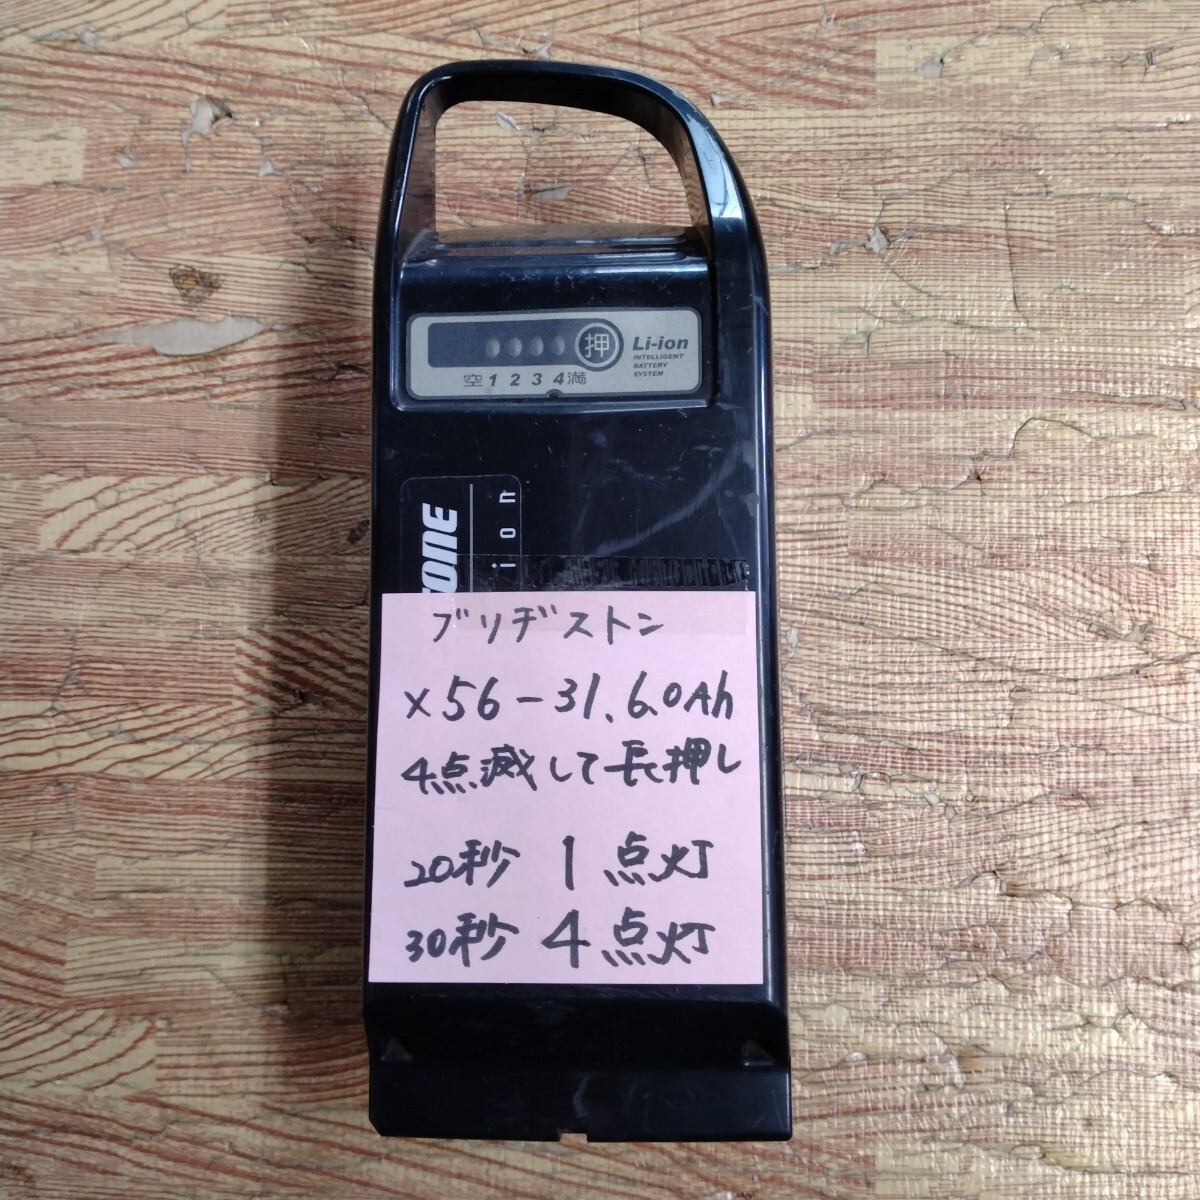 押
Li-ion
INTELLIGENT
BATTERY
SYSTEM
空 1 2 3 4 満
ブリヂストン
X56-31. 6.0Ah
4点滅して長押し
20秒 1 点灯
30秒 4 点灯